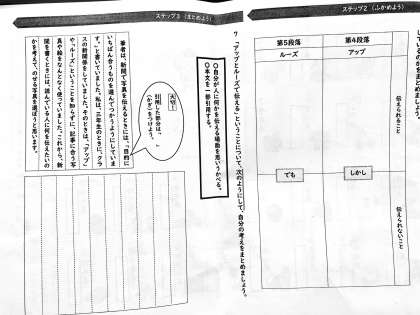 ステップ2（ふかめよう）
しているのかをまとめましょう。
第4段落
アップ
第5段落
ルーズ
伝えられること
伝えられないこと
しかし
でも
ステップ3（まとめよう）
7 「アップとルーズで伝える」ということについて、次のようにして、自分の考えをまとめましょう。
○自分が人に何かを伝える場面を思いうかべる。
○本文を一部引用する。
大切！
引用した部分は、「」
（かぎ）をつけよう。
筆者は、新聞で写真を伝えるときには、「目的に
いちばん合うものを選んでつかうようにしていま
す。」と書いていました。私は、三年生のときに、クラ
スの新聞係をしていました。そのときは、「アップ」
や「ルーズ」ということを知らずに、記事に合う写
真や絵をなんとなく使っていました。これから、新
聞を書くときには、読んでいる人に何を伝えたいの
かを考えて、のせる写真を選ぼうと思います。